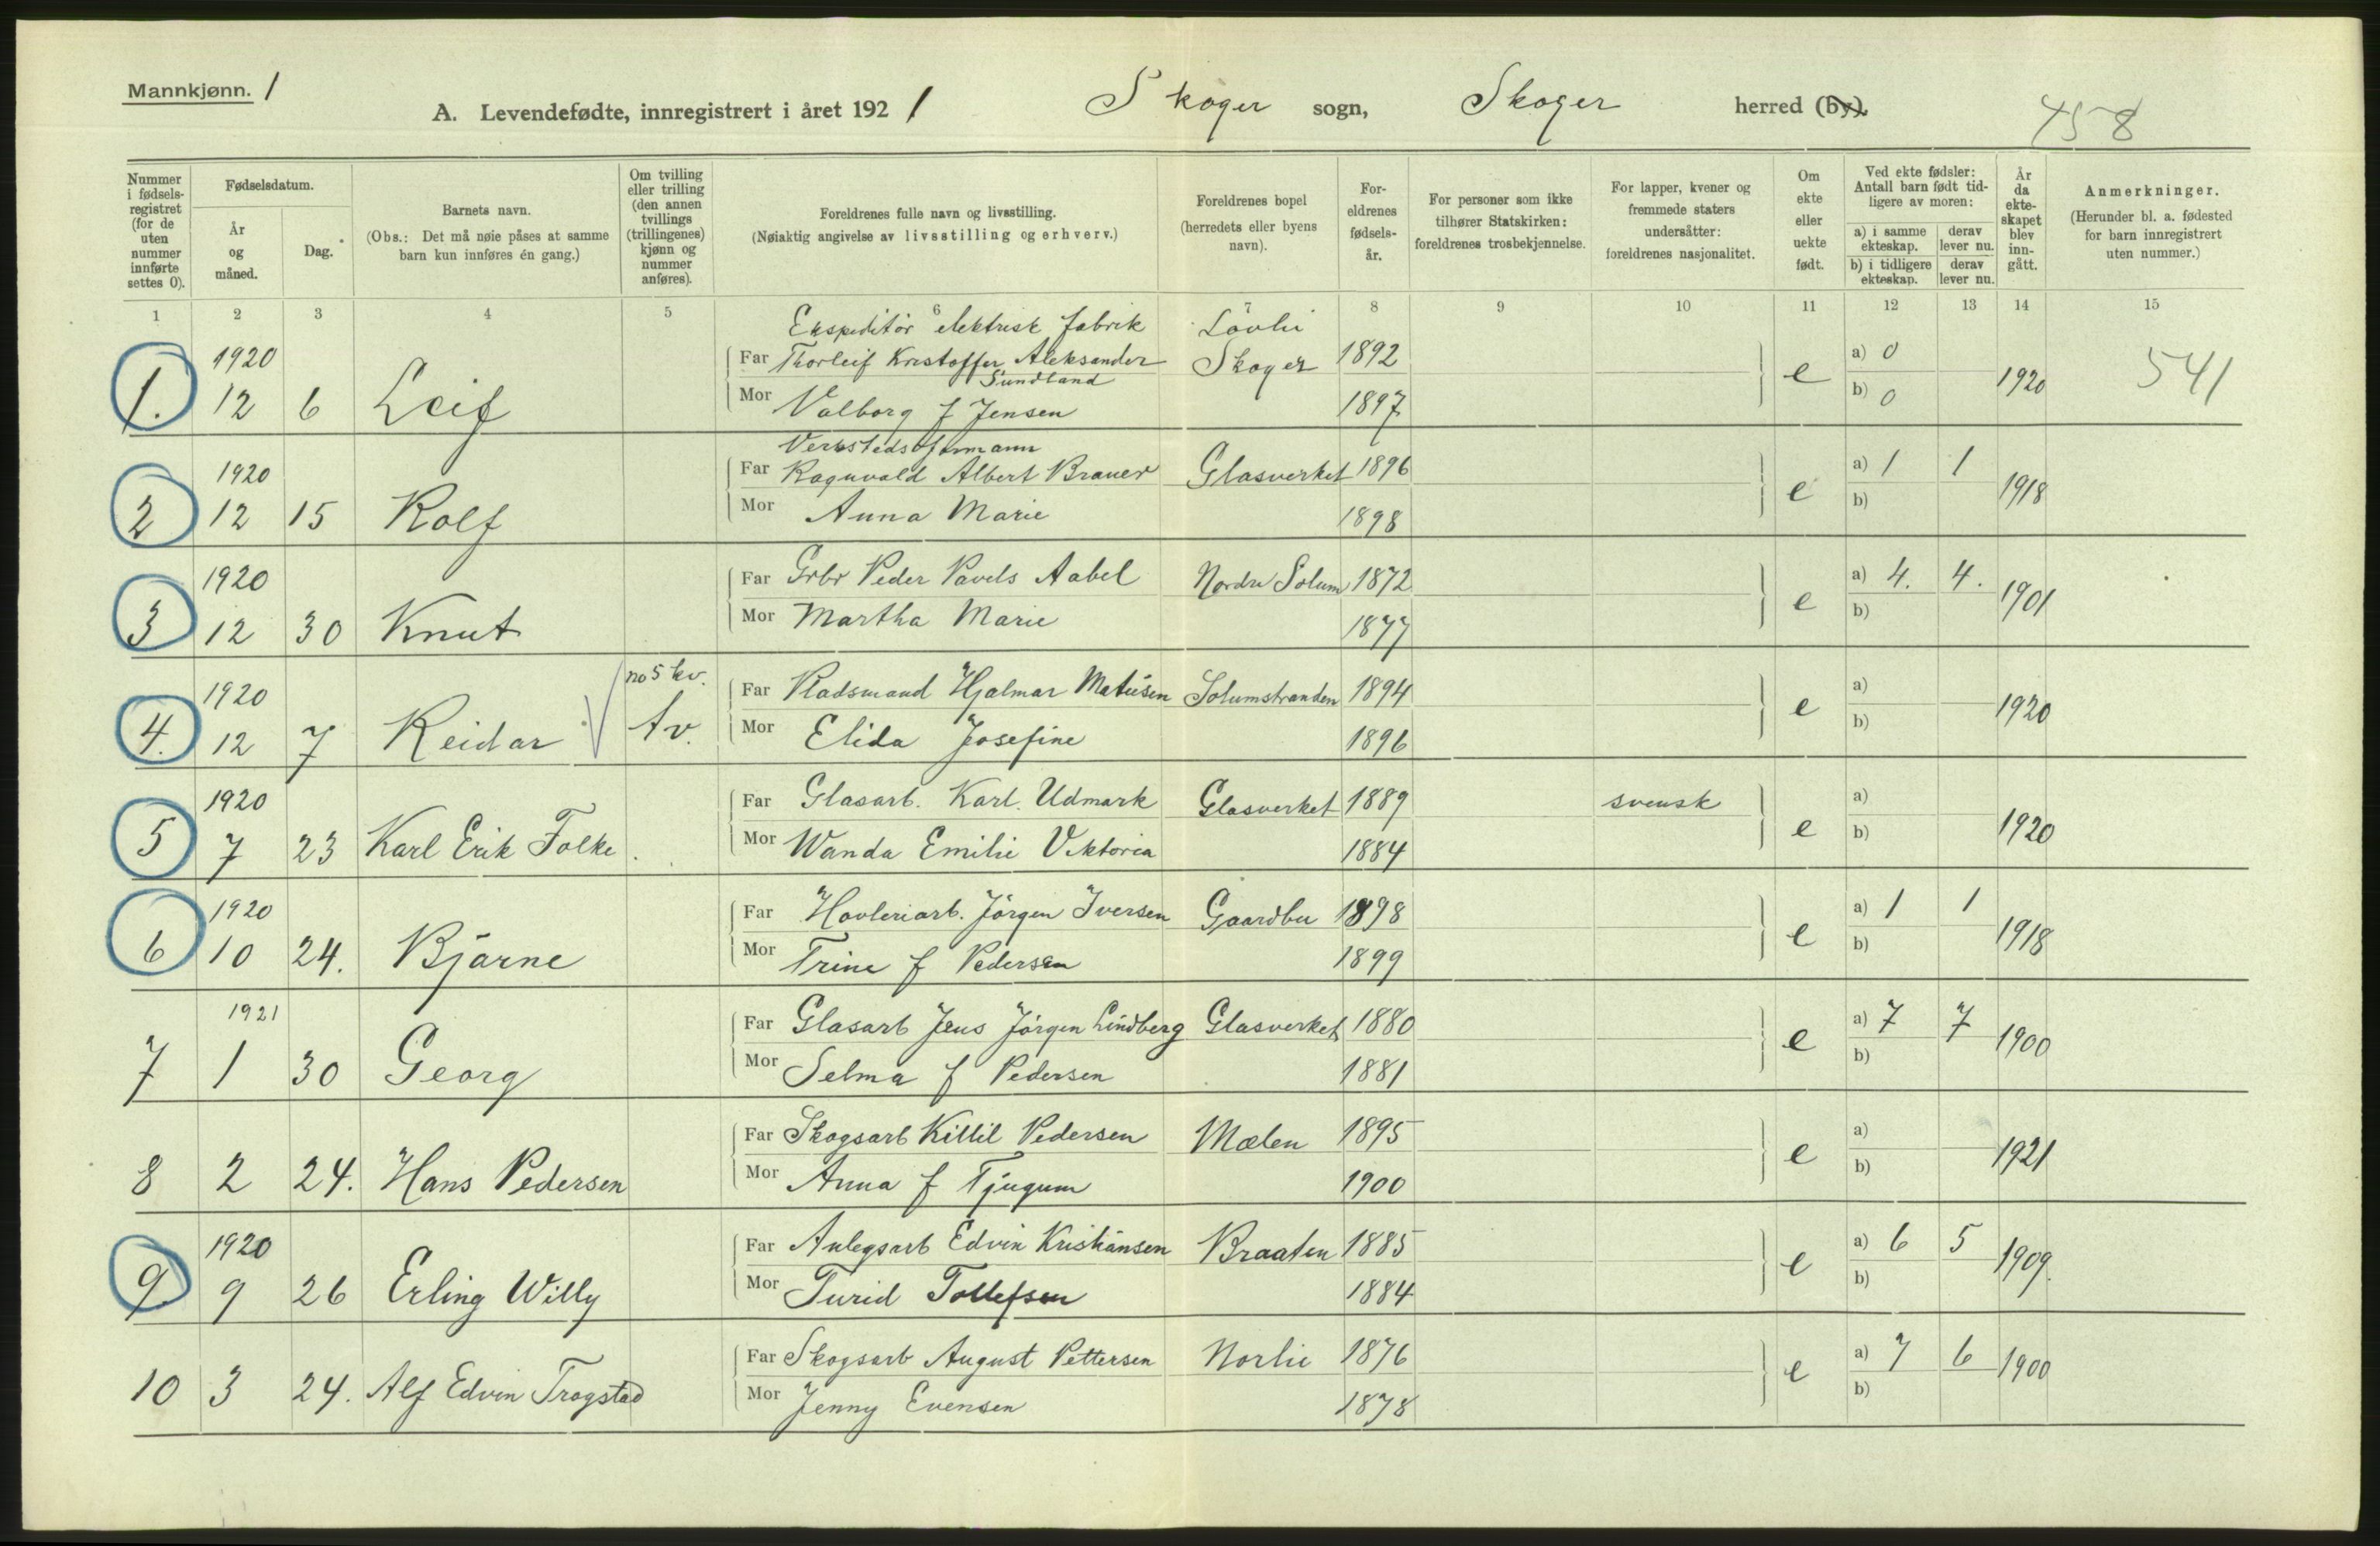 Mannkjønn. 1
A. Levendefødte, innregistrert i året 1921 Skoger sogn, Skoger herred (by).
458
Nummer i fødselsregistret (for de uten nummer innførte settes 0).
Fødselsdatum.
År og måned.
Dag.
Barnets navn.
(Obs.: Det må nøie påses at samme barn kun innføres én gang.)
Om tvilling eller trilling (den annen tvillings (trillingenes) kjønn og nummer anføres).
Foreldrenes fulle navn og livsstilling.
(Nøiaktig angivelse av livsstilling og erhverv.)
Foreldrenes bopel (herredets eller byens navn).
Foreldrenes fødselsår.
For personer som ikke tilhører Statskirken: foreldrenes trosbekjennelse.
For lapper, kvener og fremmede staters undersåtter: foreldrenes nasjonalitet.
Om ekte eller uekte født.
Ved ekte fødsler: Antall barn født tidligere av moren:
a) i samme ekteskap. derav lever nu.
b) i tidligere ekteskap. derav lever nu.
År da ekteskapet blev inngått.
Anmerkninger.
(Herunder bl. a. fødested for barn innregistrert uten nummer.)
1 2 3 4 5 6 7 8 9 10 11 12 13 14 15
Ekspeditør elektrisk fabrik Lövli
1920 Far Thorleif Kristoffer Aleksander Sundland Skoger 1892 a) 0
1. 12 6 Leif Mor Valborg f Jensen 1897 e b) 0 1920 541
Verkstedsformann
1920 Far Ragnvald Albert Brauer Glasverket 1896 a) 1 1
2 12 15 Rolf Mor Anna Marie 1898 e b) 1918
1920 Far Grbr Peder Pavels Aabel Nordre Solum 1872 a) 4. 4.
3 12 30 Knut Mor Martha Marie 1877 e b) 1901
1920 no 5 kv. Far Pladsmand Hjalmar Matisen Solumstranden 1894 a)
4. 12 7 Reidar tv. Mor Elida Josefine 1896 e b) 1920
1920 Far Glasarb. Karl. Udmark Glasverket 1889 svensk a)
5 7 23 Karl Erik Folke. Mor Wanda Emilie Viktoria 1884 e b) 1920
1920 Far Hovleriarb. Jörgen Iversen Gaardbu 1898 a) 1 1
6 10 24. Bjarne Mor Trine f Pedersen 1899 e b) 1918
1921 Far Glasarb Jens Jörgen Lindberg Glasverket 1880 a) 7 7
7 1 30 Georg Mor Selma f Pedersen 1881 e b) 1900
Far Skogsarb Kittil Pedersen Mælen 1895 a)
8 2 24. Hans Pedersen Mor Anna f Tjugum 1900 e b) 1921
1920 Far Anlegsarb Edvin Kristiansen Braaten 1885 a) 6 5
9. 9 26 Erling Willy Mor Turid Tollefsen 1884 e b) 1909.
Far Skogsarb August Pettersen Norlie 1876 a) 7 6
10 3 24. Alf Edvin Trogstad Mor Jenny Evensen 1878 e b) 1900